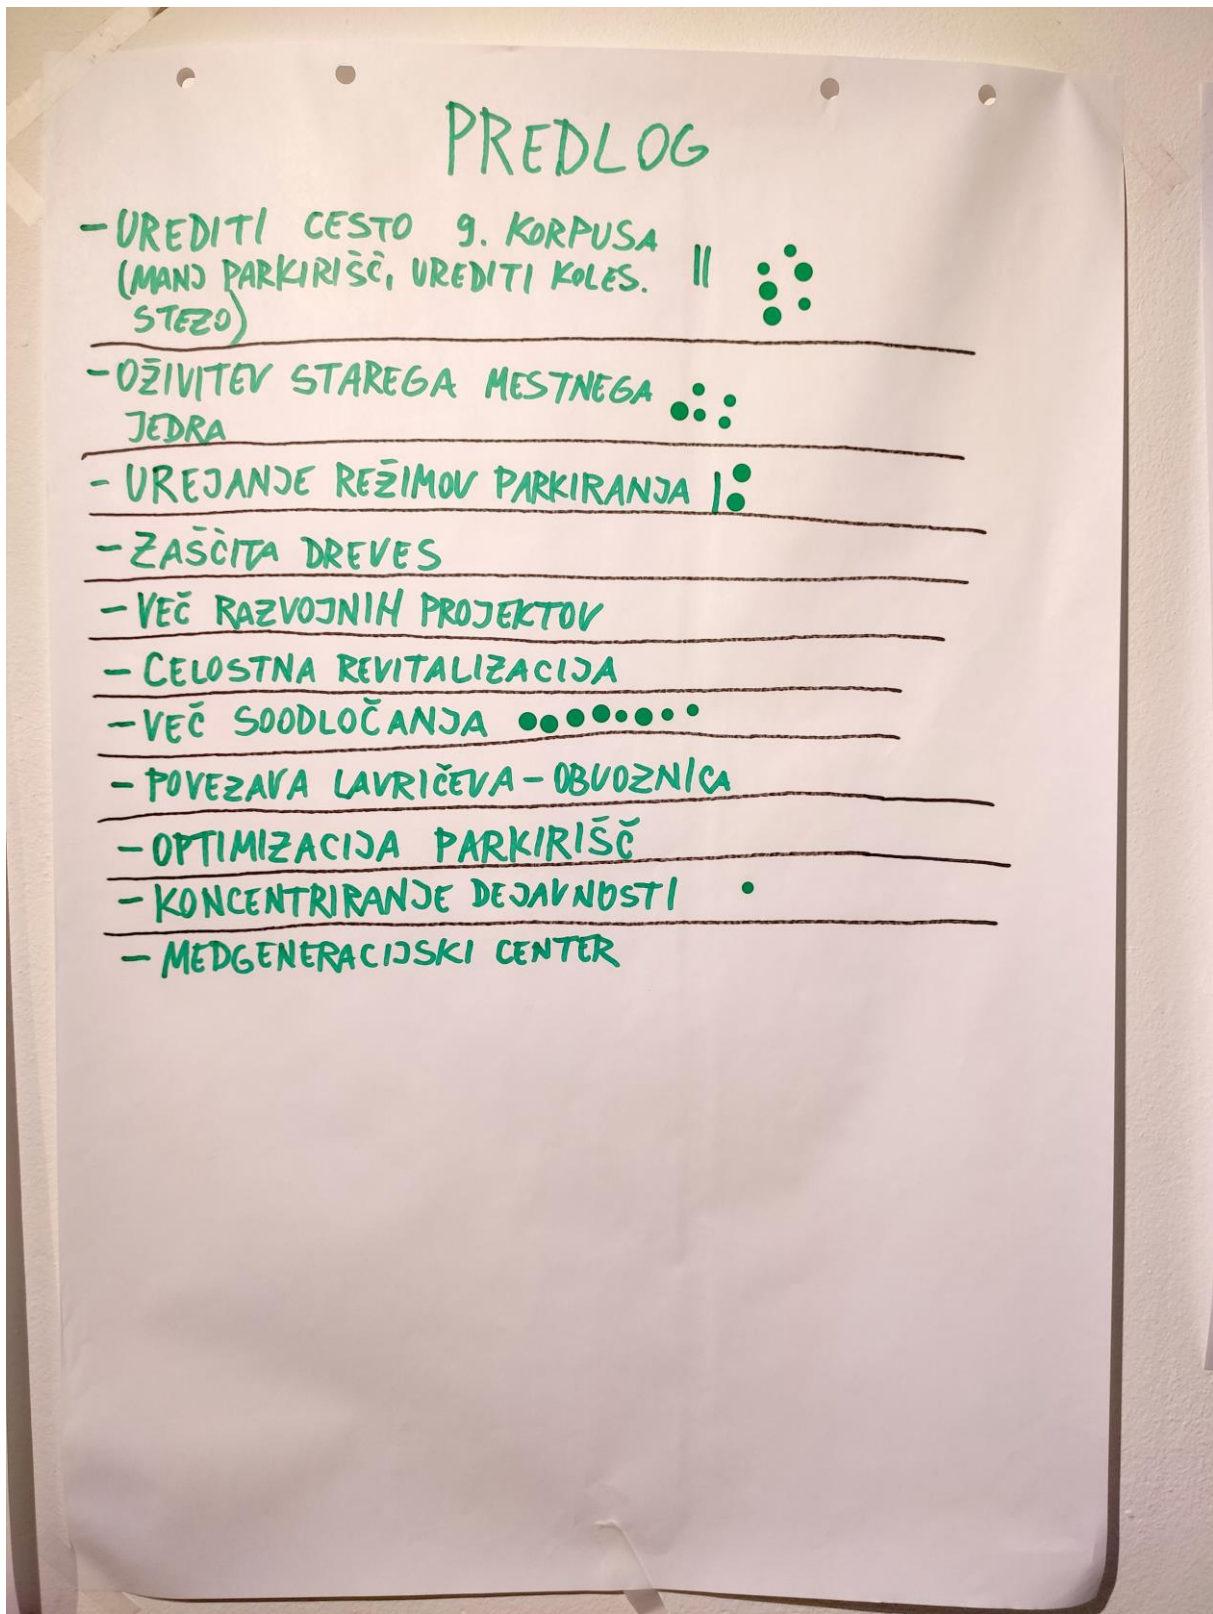 PREDLOG
- UREDITI CESTO 9. KORPUSA ||
(MANJ PARKIRIŠČ, UREDITI KOLES.
STEZO)
- OŽIVITEV STAREGA MESTNEGA
JEDRA
- UREJANJE REŽIMOV PARKIRANJA |
- ZAŠČITA DREVES
- VEČ RAZVOJNIH PROJEKTOV
- CELOSTNA REVITALIZACIJA
- VEČ SOODLOČANJA
- POVEZAVA LAVRIČEVA - OBVOZNICA
- OPTIMIZACIJA PARKIRIŠČ
- KONCENTRIRANJE DEJAVNOSTI
- MEDGENERACIJSKI CENTER